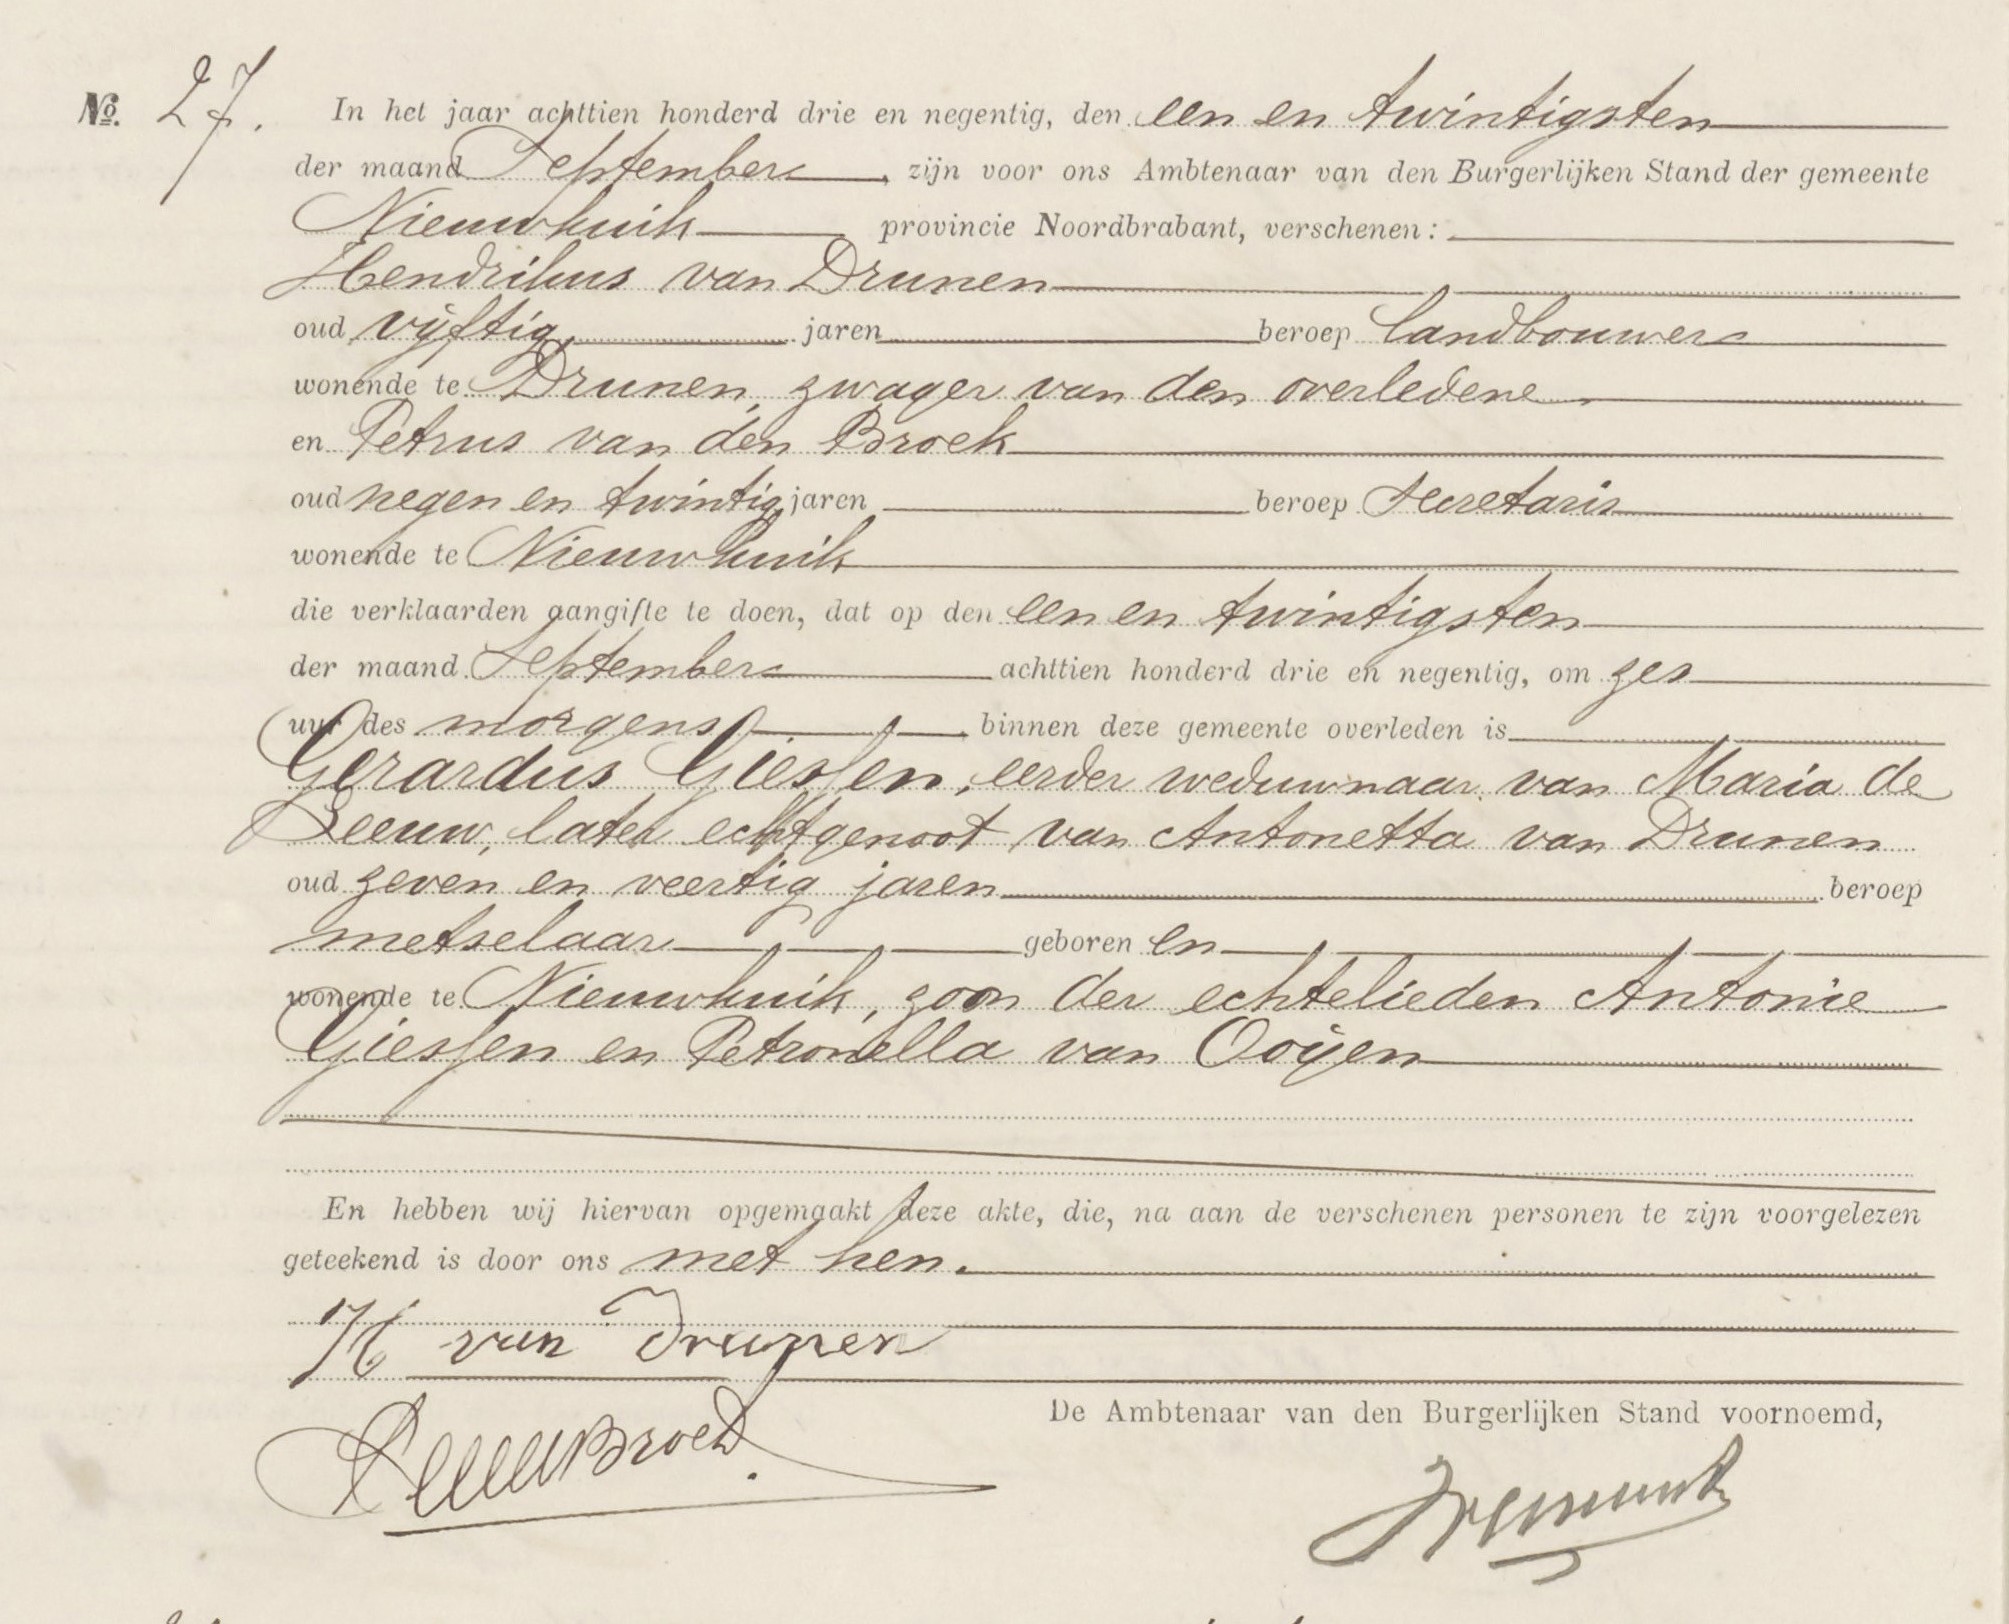 No. 27. In het jaar achttien honderd drie en negentig, den een en twintigsten
der maand September, zijn voor ons Ambtenaar van den Burgerlijken Stand der gemeente
Nieuwkuik provincie Noordbrabant, verschenen:
Hendrikus van Drunen
oud vijftig jaren beroep landbouwer
wonende te Drunen, zwager van den overledene
en Petrus van den Broek
oud negen en twintig jaren beroep Secretaris
wonende te Nieuwkuik
die verklaarden aangifte te doen, dat op den een en twintigsten
der maand September achttien honderd drie en negentig, om zes
uur des morgens, binnen deze gemeente overleden is
Gerardus Giessen, eerder weduwnaar van Maria de
Leeuw, later echtgenoot van Antonetta van Drunen
oud zeven en veertig jaren beroep
metselaar geboren en
wonende te Nieuwkuik, zoon der echtelieden Antonie
Giessen en Petronella van Ooijen
En hebben wij hiervan opgemaakt deze akte, die, na aan de verschenen personen te zijn voorgelezen
geteekend is door ons met hen.
H van Drunen
De Ambtenaar van den Burgerlijken Stand voornoemd,